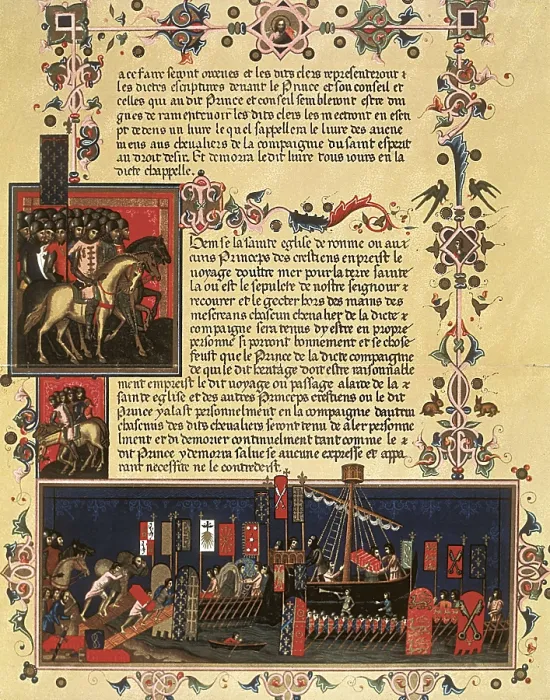 a ce faire seront ordenes et les dits clers representeront &
les dictes escriptures devant le Prince et son conseil et
celles qui au dit Prince et conseil sembleront estre din
gnes de ramentevoir les dits clers les mectront en escri
pt dedens un livre le quel sappellera le livre des avene
mens aus chevaliers de la compaignie du saint esperit
au droit desir. Et demorra le dit livre tous iours en la
dicte chappelle.
Item se la sainte eglise de romme ou aux
cuns Princeps des crestiens enpreist le
voyage doultre mer pour la terre sainte
la ou est le sepulcre de nostre seigneur &
recouvrer et le gecter hors des mains des
mescreans chascun chevalier de la dicte &
compaigne sera tenus dy estre en propre
personne si porront bonnement et se chose
feust que le Prince de la dicte compaignie
de qui le dit heritage doit estre raisonnable
ment empreist le dit voyage ou passage a laide de la &
sainte eglise et des autres Princeps crestiens ou le dit
Prince y alast personnelment en la compaignie dautrui
chascuns des dits chevaliers seront tenu de aler personne
lment et di demorer continuelment tant comme le &
dit Prince y demorra salve se aucune expresse et appa
rant necessite ne le contredeist.